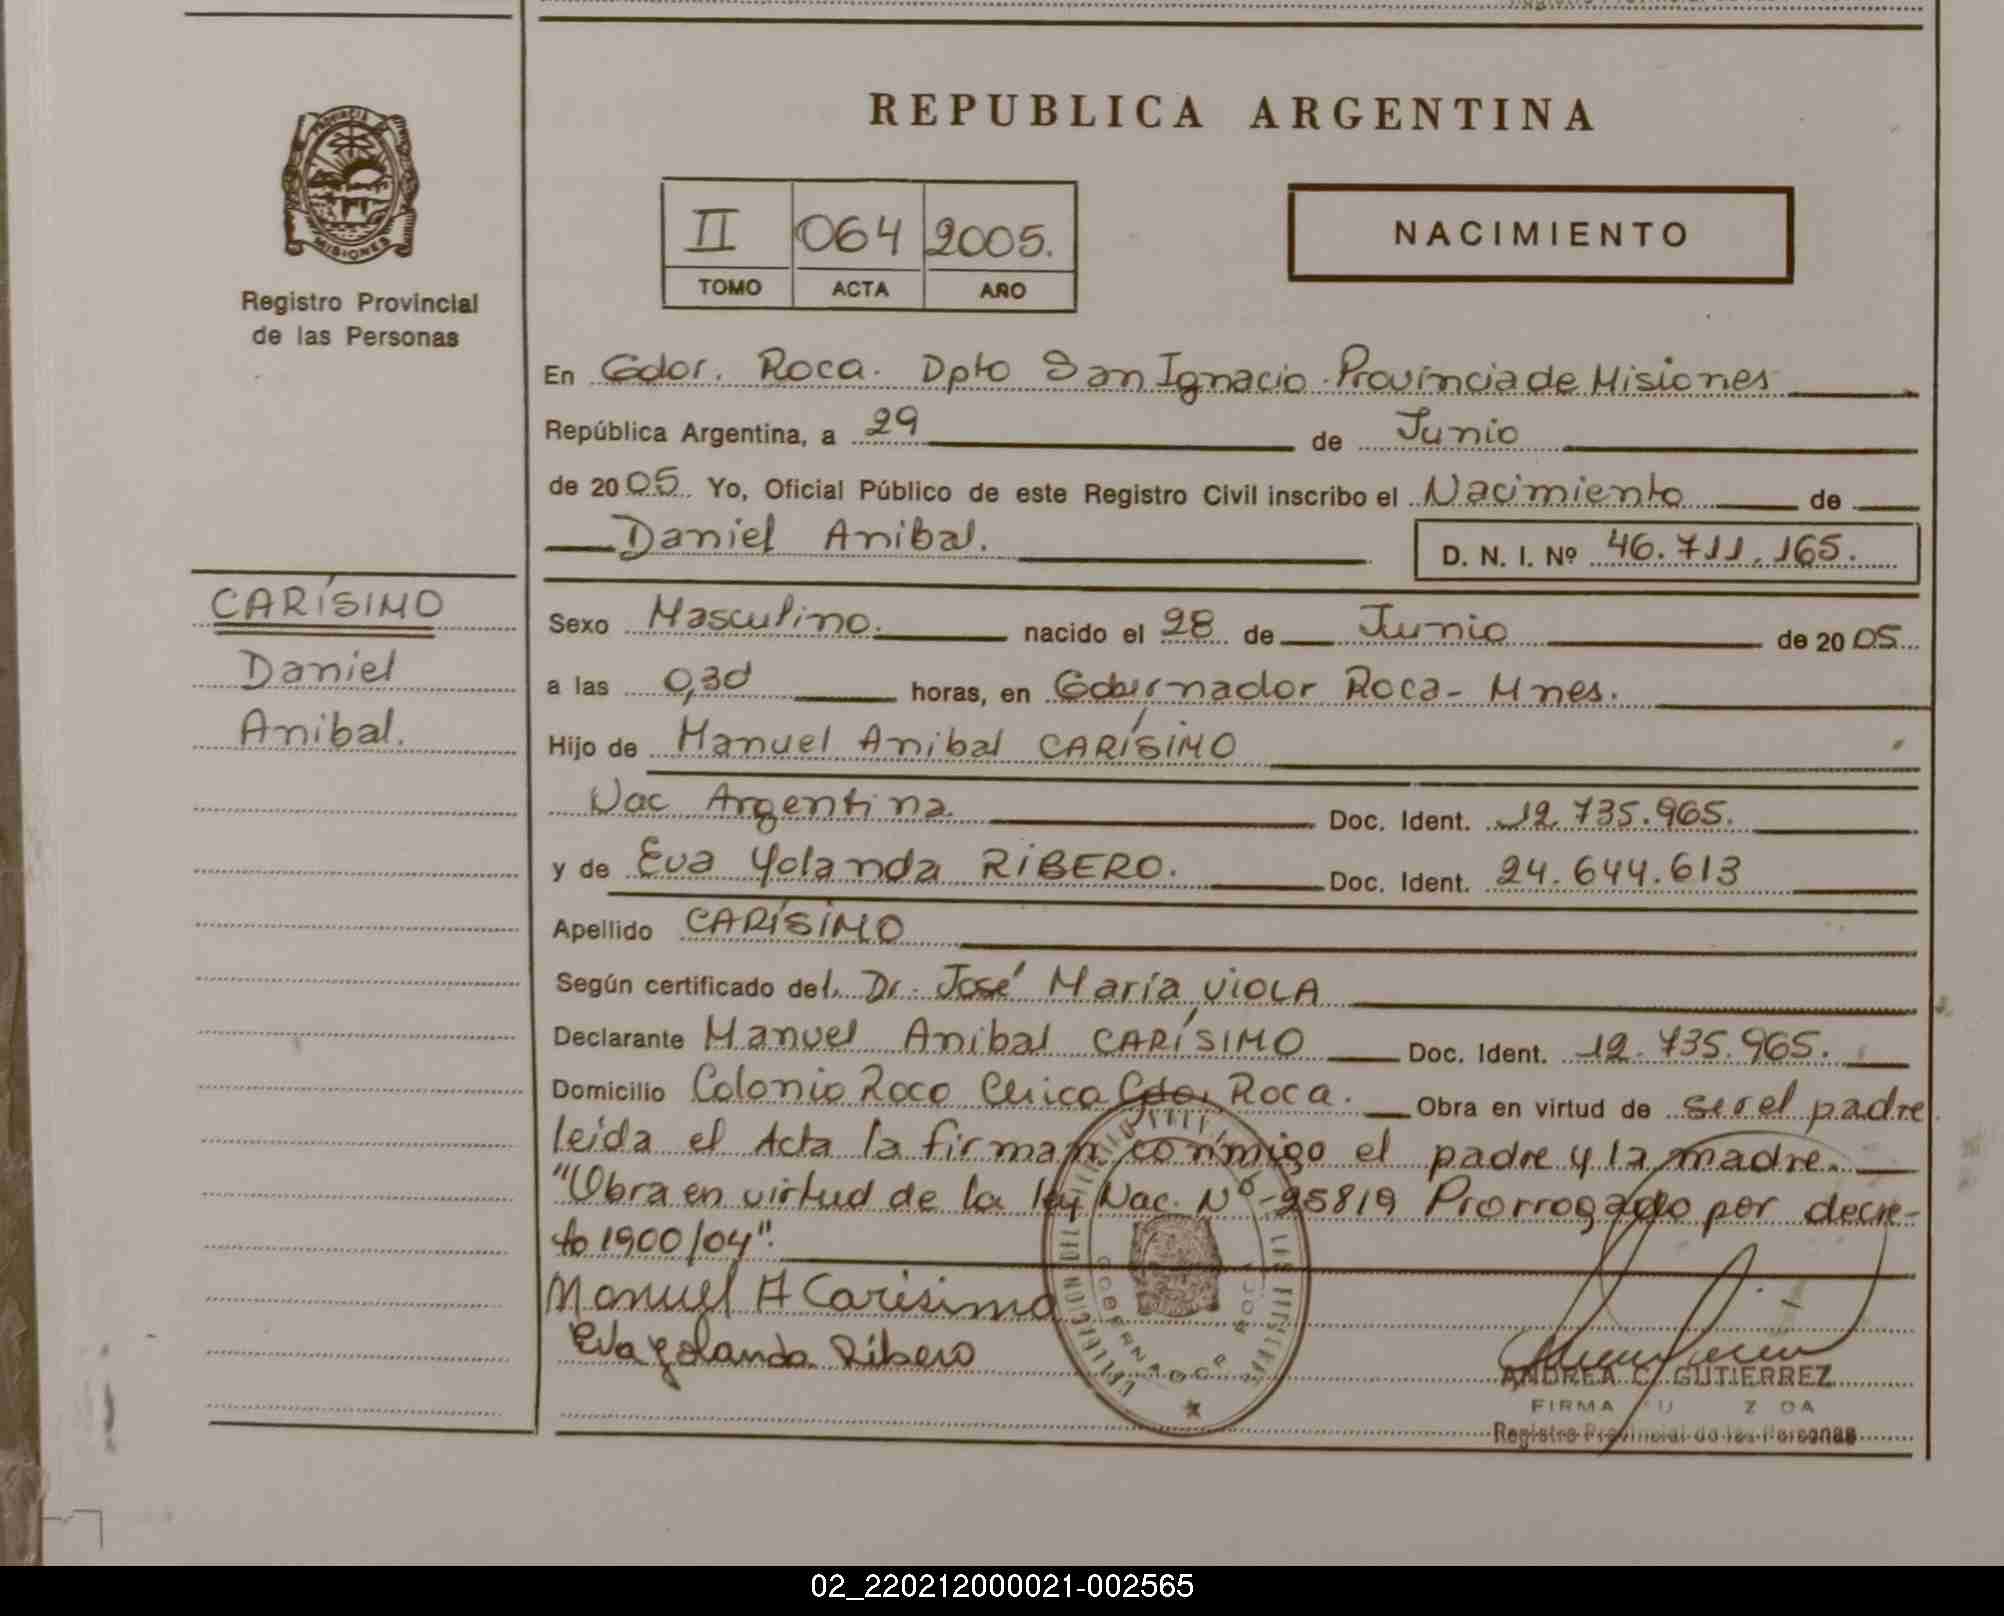 REPUBLICA ARGENTINA
PROVINCIA DE
MISIONES
Registro Provincial
de las Personas
II 064 2005.
TOMO ACTA AÑO
NACIMIENTO
En Gdor. Roca. Dpto San Ignacio. Provincia de Misiones
República Argentina, a 29 de Junio
de 2005. Yo, Oficial Público de este Registro Civil inscribo el Nacimiento de
Daniel Anibal. D. N. I. Nº 46.711.165.
CARÍSIMO
Daniel
Anibal.
Sexo Masculino. nacido el 28 de Junio de 2005
a las 0,30 horas, en Gobernador Roca - Mnes.
Hijo de Manuel Anibal CARÍSIMO
Nac Argentina Doc. Ident. 12.735.965.
y de Eva Yolanda RIBERO. Doc. Ident. 24.644.613
Apellido CARÍSIMO
Según certificado del Dr. José María VIOLA
Declarante Manuel Anibal CARÍSIMO Doc. Ident. 12.735.965.
Domicilio Colonia Roca Chica Gdor Roca. Obra en virtud de ser el padre
leída el Acta la firman conmigo el padre y la madre.
"Obra en virtud de la ley Nac. Nº - 25819 Prorrogado por decre-
to 1900/04".
Manuel A Carisimo
Eva Yolanda Ribero
GOBERNADOR ROCA
ANDREA C. GUTIERREZ
FIRMA
Registro Provincial de las Personas
02_220212000021-002565